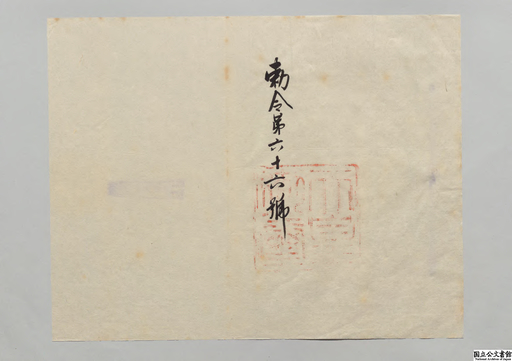 勅令第六十六號
国立公文書館
National Archives of Japan